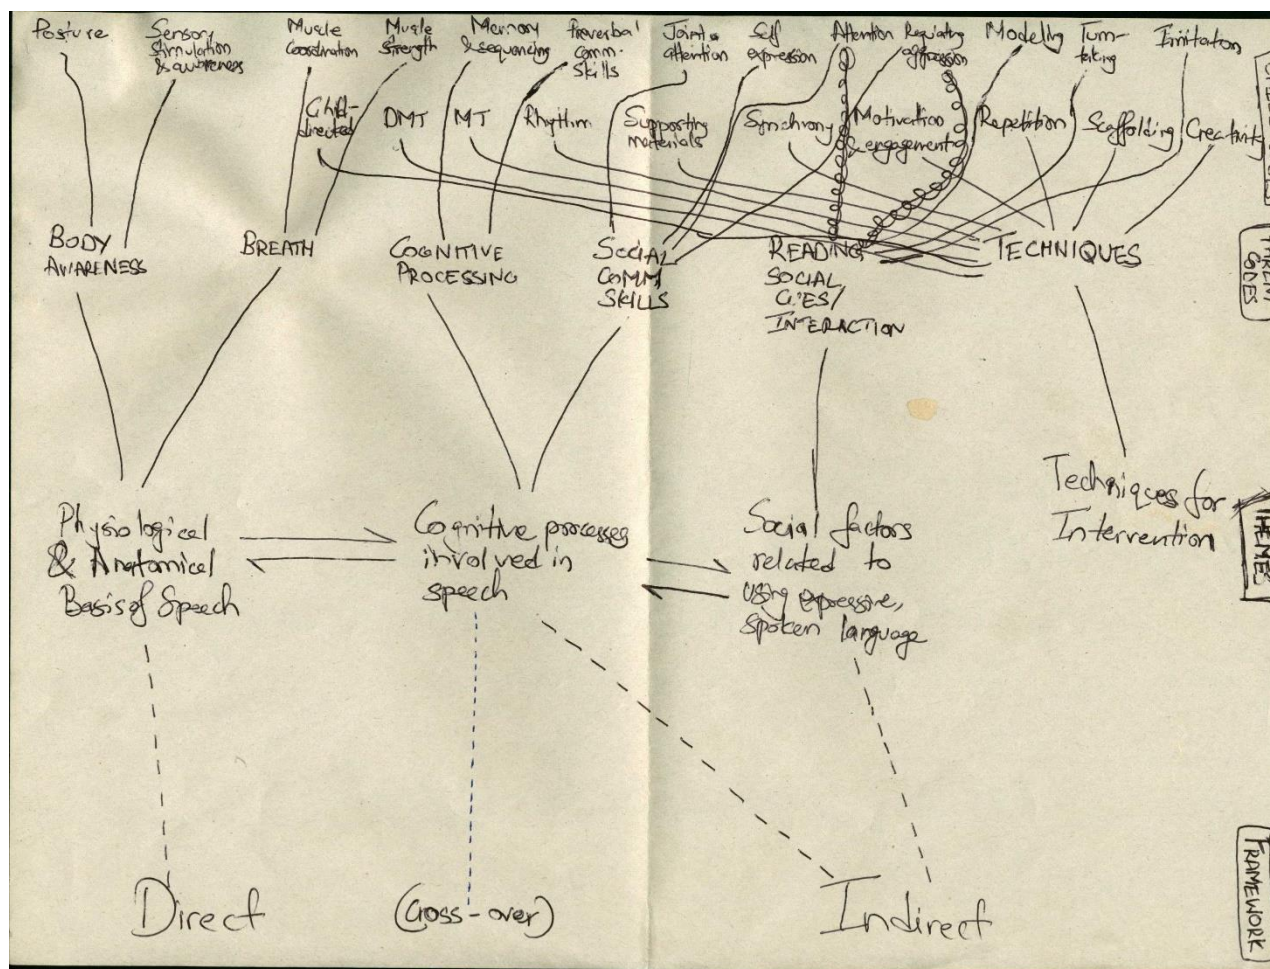 Posture
Sensory
stimulation
& awareness
Muscle
Coordination
Muscle
strength
Memory
& sequencing
Preverbal
comm.
skills
Joint
attention
Self
expression
Attention
Regulating
aggression
Modeling
Turn-
taking
Imitation
Child-
directed
DMT
MT
Rhythm
Supporting
materials
Synchrony
Motivation
& engagement
Repetition
Scaffolding
Creativity
BODY
AWARENESS
BREATH
COGNITIVE
PROCESSING
SOCIAL
COMM
SKILLS
READING
SOCIAL
CUES/
INTERACTION
TECHNIQUES
CODES
Physiological
& Anatomical
Basis of Speech
Cognitive processes
involved in
speech
Social factors
related to
using expressive,
spoken language
Techniques for
Intervention
THEMES
Direct
(Cross-over)
Indirect
FRAMEWORK